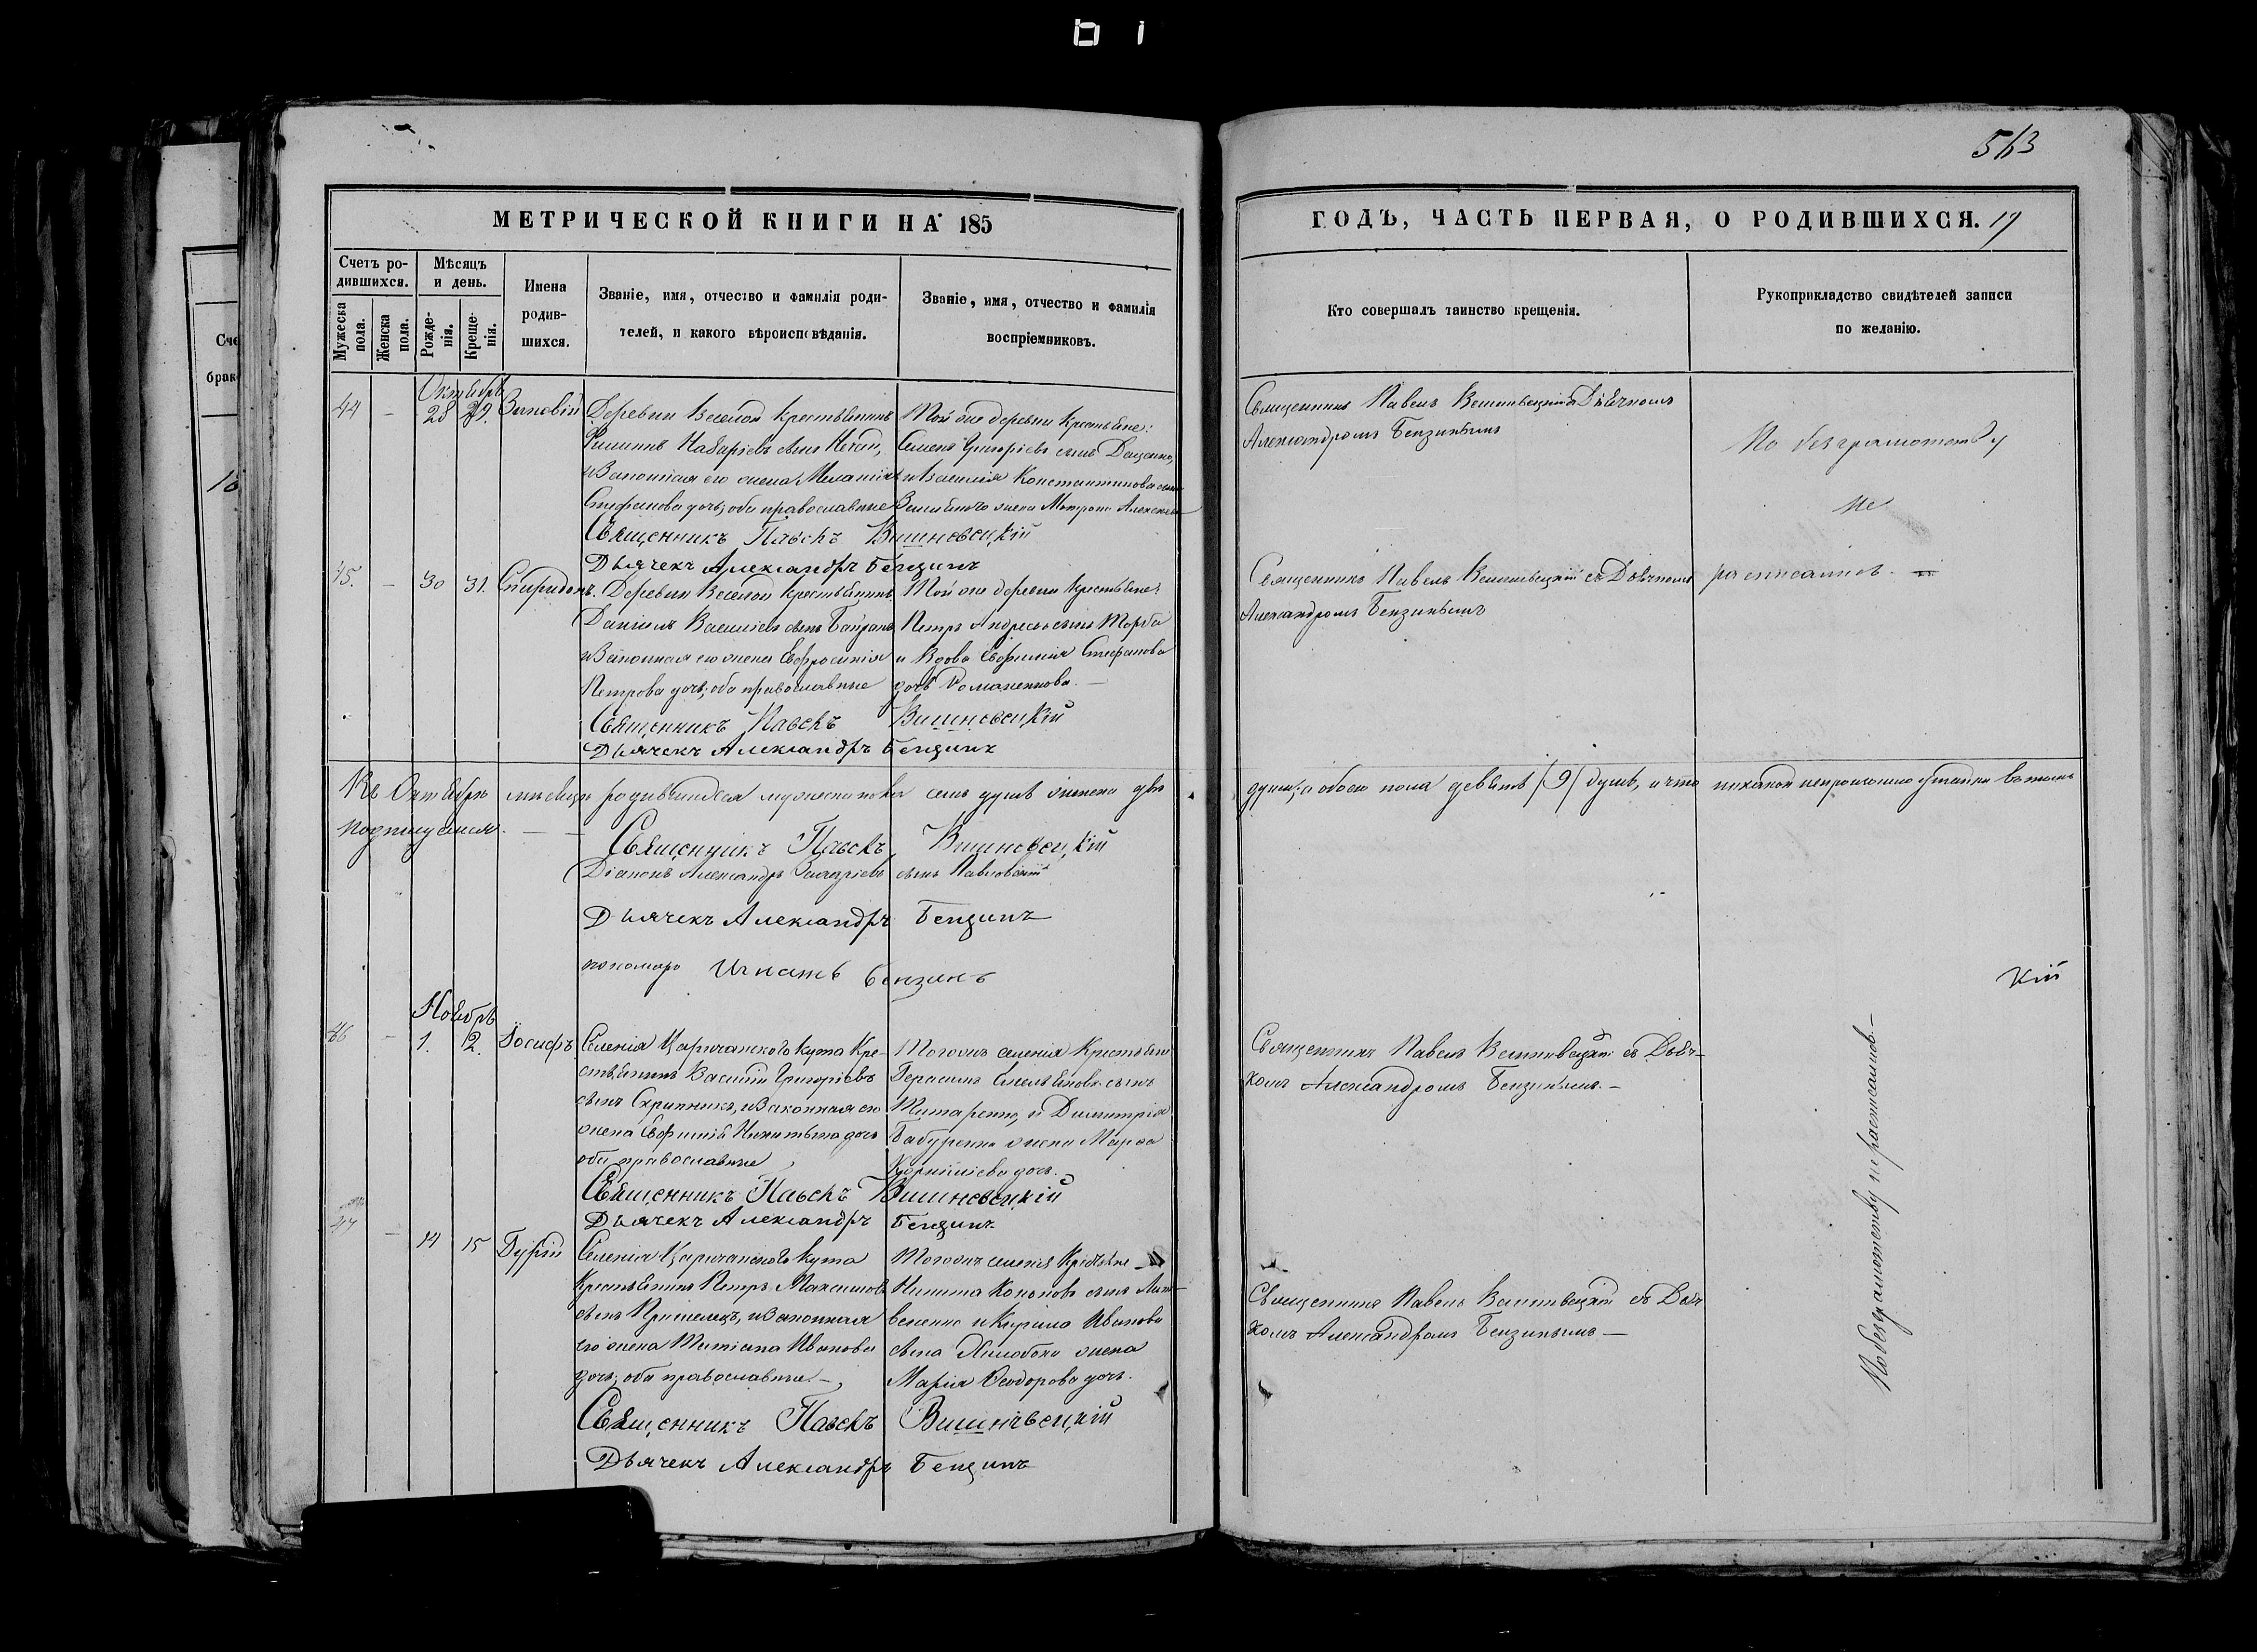 563
МЕТРИЧЕСКОЙ КНИГИ НА 185
ГОДЪ, ЧАСТЬ ПЕРВАЯ, О РОДИВШИХСЯ. 19
Счетъ ро-
дившихся.
Мужеска
пола.
Женска
пола.
Мѣсяцъ
и день.
Рожде-
нія.
Креще-
нія.
Имена
родив-
шихся.
Званіе, имя, отчество и фамилія роди-
телей, и какого вѣроисповѣданія.
Званіе, имя, отчество и фамилія
воспріемниковъ.
Кто совершалъ таинство крещенія.
Рукоприкладство свидѣтелей записи
по желанію.
Октябрь
44 - 28 29. Зиновій
Деревни Веселой крестьянинъ
Филиппъ сынъ
и Законная его жена Меланія
Стефанова дочь; оба православные
Той же деревни крестьяне:
Семенъ Григорьевъ сынъ Даценко,
и Василія Константинова сына
жена Матрона
Священникъ Павелъ Вишневецкій
Дьячекъ Александръ Бензинъ
Священникъ Павелъ Вишневецкій съ Дьячкомъ
Александромъ Бензинымъ
По безграмотству
не
росписались.
45. - 30 31. Спиридонъ.
Деревни Веселой крестьянинъ
Даніилъ Василіевъ сынъ
и Законная его жена Евфросинія
Петрова дочь; оба православные
Той же деревни крестьяне:
Петръ Андреевъ сынъ Торба
и Вдова Евфимія Стефанова
дочь Романенкова.
Священникъ Павелъ Вишневецкій
Дьячекъ Александръ Бензинъ
Священникъ Павелъ Вишневецкій съ Дьячкомъ
Александромъ Бензинымъ
Въ Октябрѣ мѣсяцѣ родившихся мужеска пола семь душъ женска двѣ
души; а обоего пола девять /9/ душъ, и что никакой непроизошло утайки въ томъ
подпишемся.
Священникъ Павелъ Вишневецкій
Діаконъ Александръ Захаріевъ сынъ Павловскій
Дьячекъ Александръ Бензинъ
пономарь Игнатъ Бензинъ
кій
Ноябрь
46 - 1. 2. Іосифъ
Селенія Царичанскаго Кута Кре-
стьянинъ Василій Григоріевъ
сынъ Скрипникъ, и Законная его
жена Евфимія Никитина дочь
оба православные
Тогожъ селенія Крестьяне
Герасимъ Емельяновъ сынъ
Титаренко, и Димитрія
Бабуренка жена Марѳа
дочь.
Священникъ Павелъ Вишневецкій
Дьячекъ Александръ Бензинъ
Священникъ Павелъ Вишневецкій съ Дьяч-
комъ Александромъ Бензинымъ.
47 - 14 15 Гурій
Селенія Царичанскаго Кута
Крестьянинъ Петръ Максимовъ
сынъ Пришелецъ, и Законная
его жена Татіана Иванова
дочь; оба православные.
Тогожъ селенія Крестьяне
Никита Кононовъ сынъ Лит-
вененко и Кирила Иванова
сына Бѣлобока жена
Марія Ѳеодорова дочь.
Священникъ Павелъ Вишневецкій
Дьячекъ Александръ Бензинъ
Священникъ Павелъ Вишневецкій съ Дьяч
комъ Александромъ Бензинымъ
По безграмотству не росписались.
Сче
брак